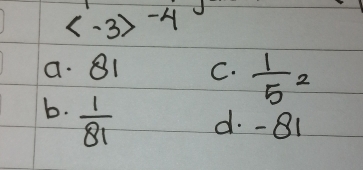 <-3>⁻⁴
a. 81
c. 1/5 2
b. 1/81
d. -81